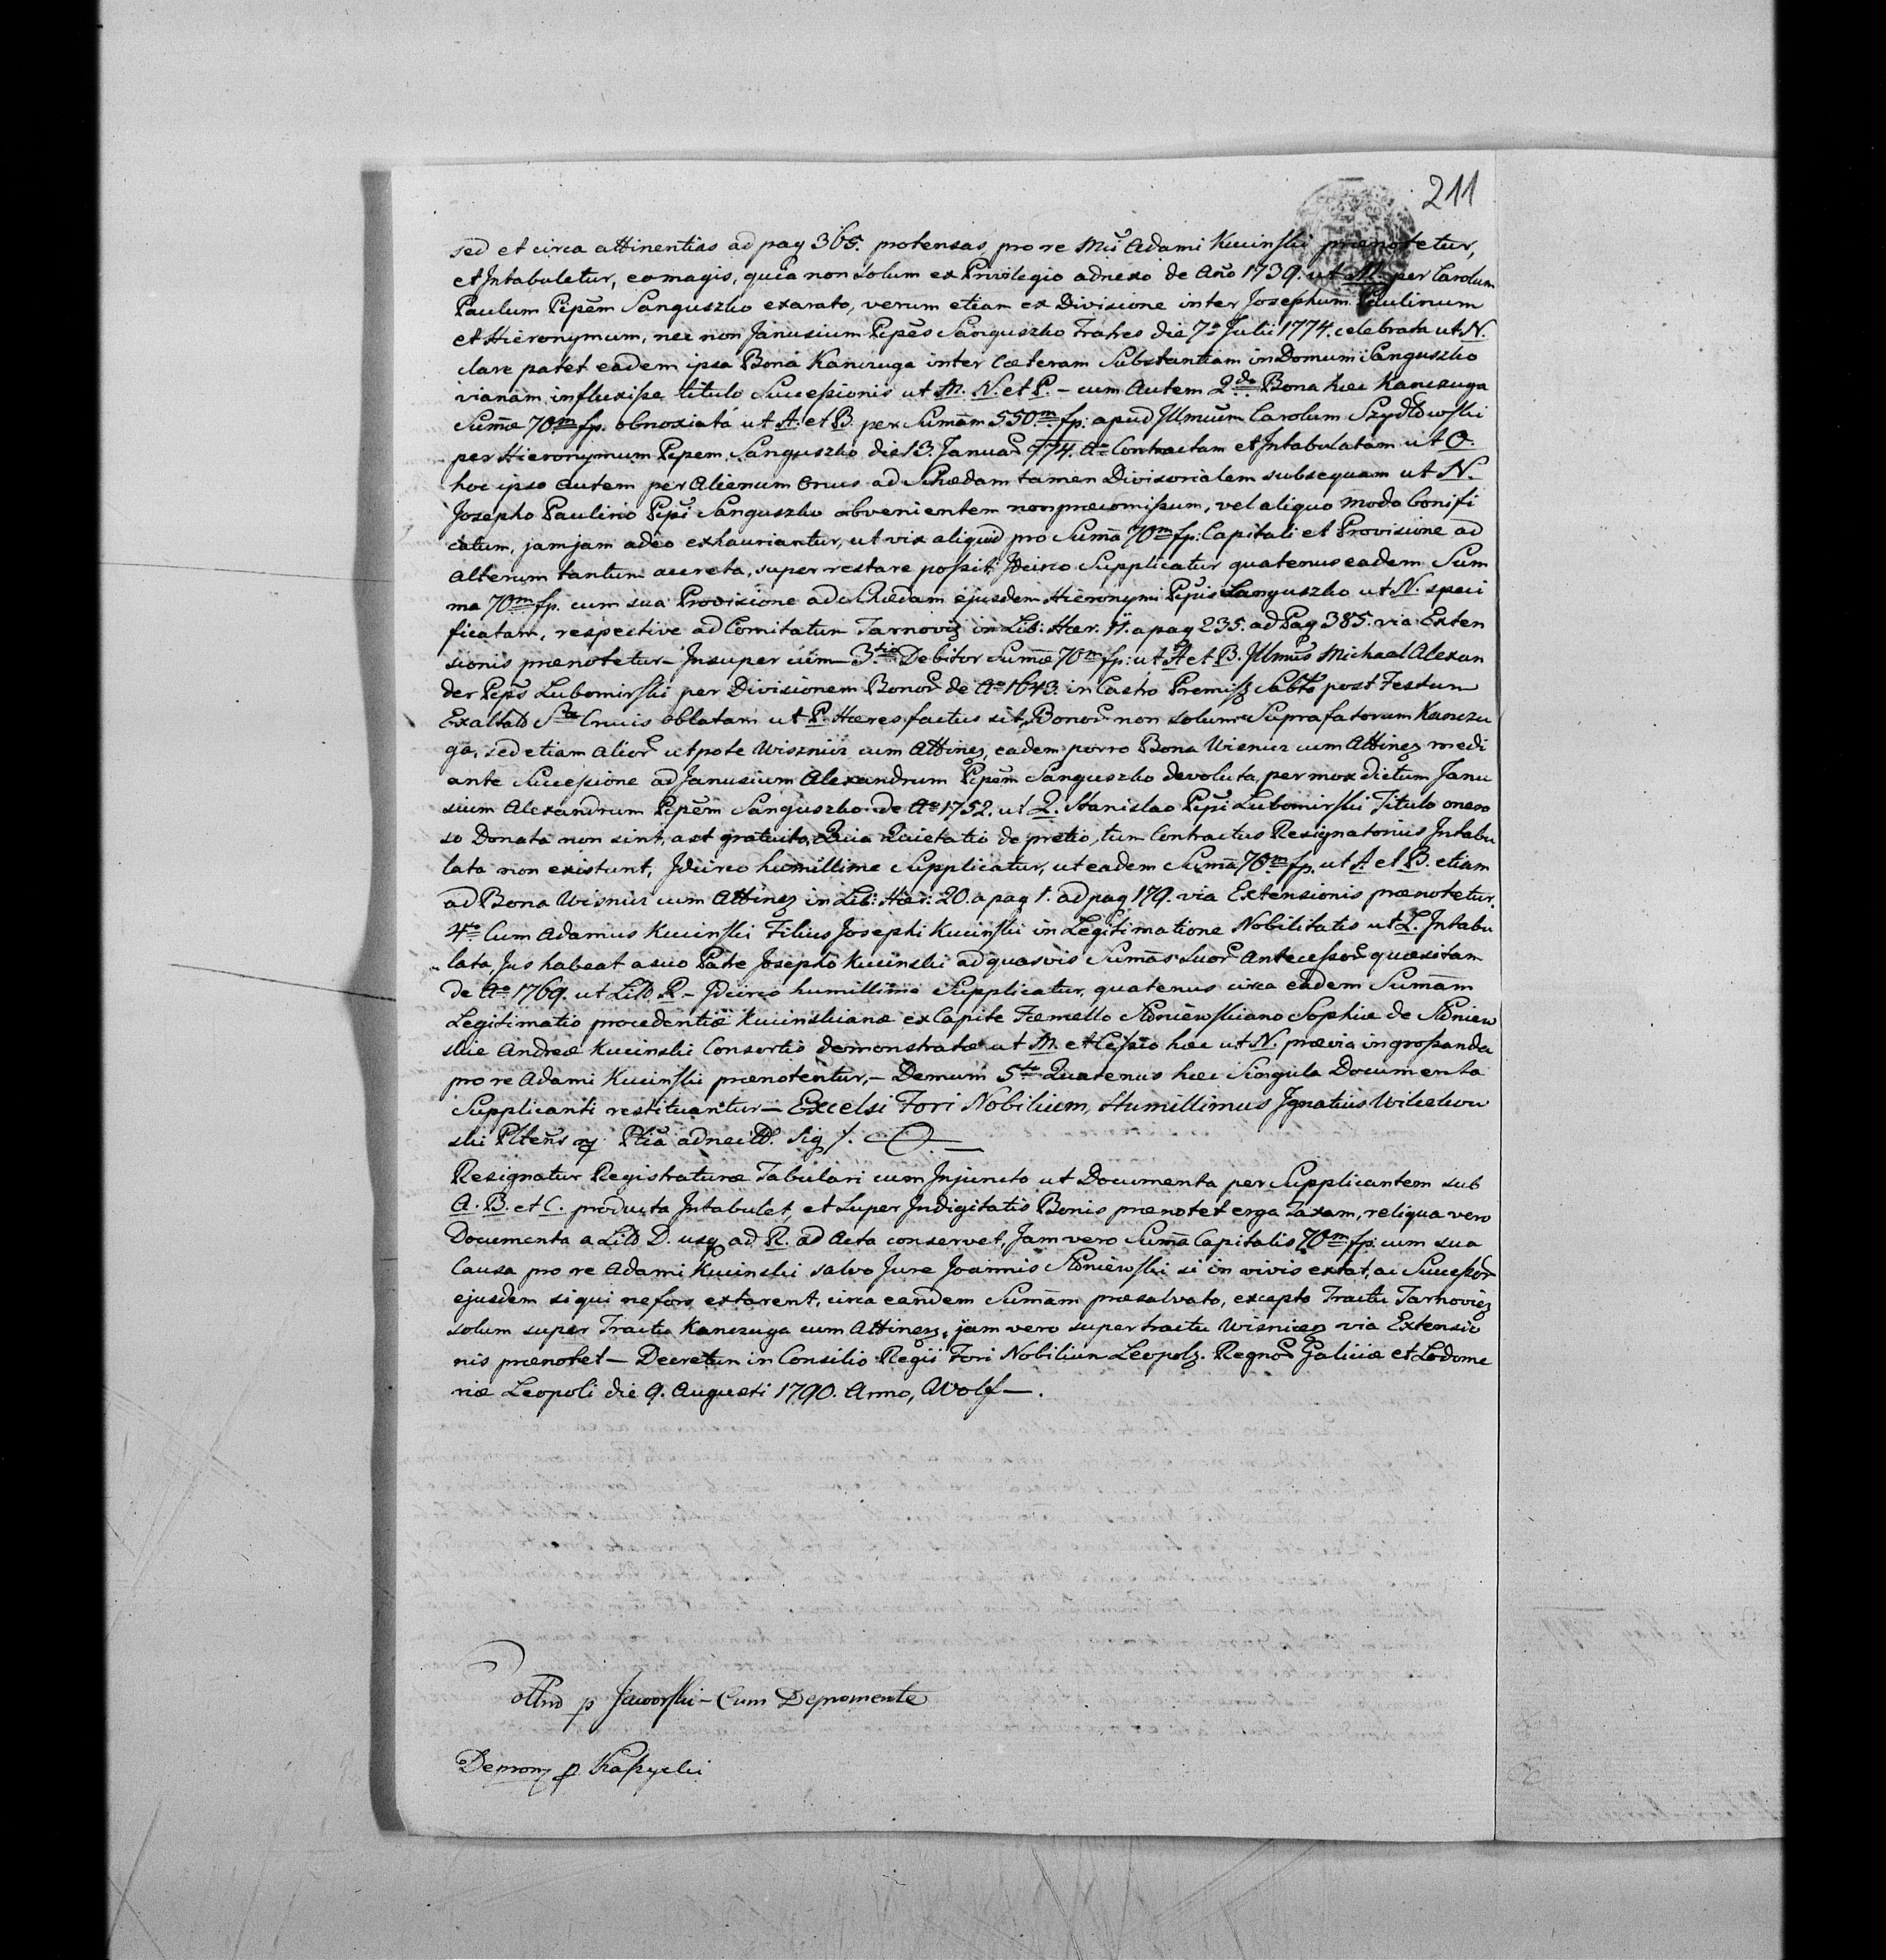 211
sed et circa attinentias ad pag 365. protensas pro re Mci Adami Kucinski prænotetur,
et Intabuletur, eo magis, quia non solum ex Privilegio adnexo de Año 1739. ut M. per Carolum
Paulum Pipem Sanguszko exarato, verum etiam ex Divisione inter Josephum Paulinum
et Hieronymum, nec non Janusium Pipes Sanguszko Fratres die 7a Julii 1774. celebrata ut N.
clare patet eadem ipsa Bona Kanczuga inter Cæteram Substantiam in Domum Sanguszko
vianam influxisse titulo Successionis ut M. N. et P. – cum Autem 2do Bona hæc Kanczuga
Sumæ 70m fp. obnoxiata ut A. et B. per Sumam 550m fp: apud Illmum Carolum Szydłowski
per Hieronymum Pipem Sanguszko die 13. Januar 774. Ao Contractam et Intabulatam ut O.
hoc ipso autem per Alienum Onus ad Schedam tamen Divisorialem subsequam ut N.
Josepho Paulino Pipi Sanguszko obvenientem non præcomissum, vel aliquo modo bonifi
catum, jamjam adeo exhauriantur, ut vix aliquid pro Suma 70m fp: Capitali et Provisione ad
alterum tantum accreta, super restare possit, Idcirco Supplicatur quatenus eadem Sum
ma 70m fp. cum sua Provisione ad Schedam ejusdem Hieronymi Pipis Sanguszko ut N. speci
ficatam, respective ad Comitatum Tarnoviz in Lib: Hær. 11. a pag 235. ad Pag 385. via Exten
sionis prænotetur – Insuper cum 3tio Debitor Sumæ 70m fp: ut A et B. Illmus Michael Alexan
der Pips Lubomirski per Divisionem Bonor de Ao 1643. in Castro Premisz Sabto post Festum
Exaltao Stæ Crucis oblatam ut P. Hæres factus sit, Bonor non solum Suprafatorum Kanczu
ga, sed etiam alior utpote Wisznicz cum Attinez, eadem porro Bona Wisnicz cum Attinez medi
ante Successione ad Janusium Alexandrum Pipem Sanguszko devoluta, per mox dictum Janu
sium Alexandrum Pipem Sanguszko de Ao 1752. ut Q. Stanislao Pipi Lubomirski Titulo onero
so Donata non sint, ast gratuito, Quia Quietatio de pretio, tum Contractus Resignatorius Intabu
lata non existunt, Idcirco humillime Supplicatur, ut eadem Suma 70m fp. ut A et B. etiam
ad Bona Wisnicz cum Attinez in Lib: Hær: 20. a pag 1. ad pag 179. via Extensionis prænotetur.
4to Cum Adamus Kucinski Filius Josephi Kucinski in Legitimatione Nobilitatis ut L. Intabu
lata, Jus habeat a suo Patre Josepho Kucinski ad quasvis Sumas Suor Antecessor quæsitam
de Ao 1769. ut Litt R. – Idcirco humillime Supplicatur, quatenus circa eadem Sumam
Legitimatio procedentiæ Kucinskianæ ex Capite Fæmello Sdniewskiano Sophiæ de Sdniew
skie Andreæ Kucinski Consortis demonstratæ ut M. et Cessio hæc ut N. prævia ingrossanda
pro re Adami Kucinski prænotentur, – Demum 5to Quatenus hæc Singula Documenta
Supplicanti restituantur – Excelsi Fori Nobilium, Humillimus Ignatius
Resignatur Registraturæ Tabulari cum Injuncto ut Documenta per Supplicantem sub
A. B. et C. producta Intabulet, et Super Indigitatis Bonis prænotet erga Taxam, reliqua vero
Documenta a Litt D. usq ad R. ad Acta conservet, Jam vero Suma Capitalis 70m fp: cum sua
Causa pro re Adami Kucinski salvo Jure Joannis Sdniewski si in vivis extat, ac Successor
ejusdem si qui nefors extarent, circa eandem Sumam præsalvato, excepto Tractu Tarnoviez
solum super Tractu Kanczuga cum Attinez, jam vero super tractu Wisniez via Extensio
nis prænotet – Decretum in Consilio Regii Fori Nobilium Leopolz. Regnor Galiciæ et Lodome
riæ Leopoli die 9. Augusti 1790. Anno, Wolf – .
p Jaworski – Cum Depromente
Deprom p